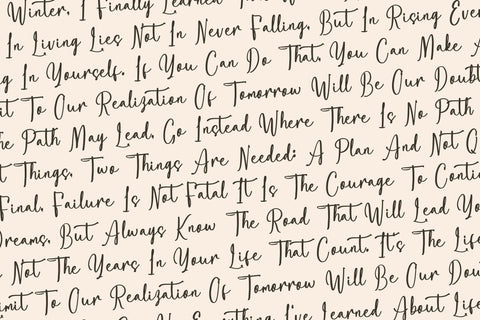 Winter, I Finally Learned
In Living Lies Not In Never Falling, But In Rising Eve
g In Yourself. If You Can Do That, You Can Make A
it To Our Realization Of Tomorrow Will Be Our Doubt
he Path May Lead, Go Instead Where There Is No Path
t Things, Two Things Are Needed: A Plan And Not Q
Final, Failure Is Not Fatal It Is The Courage To Conti
Dreams, But Always Know The Road That Will Lead Yo
Not The Years In Your Life That Count. It's The Life
imit To Our Realization Of Tomorrow Will Be Our Dou
Everything I've Learned About Life